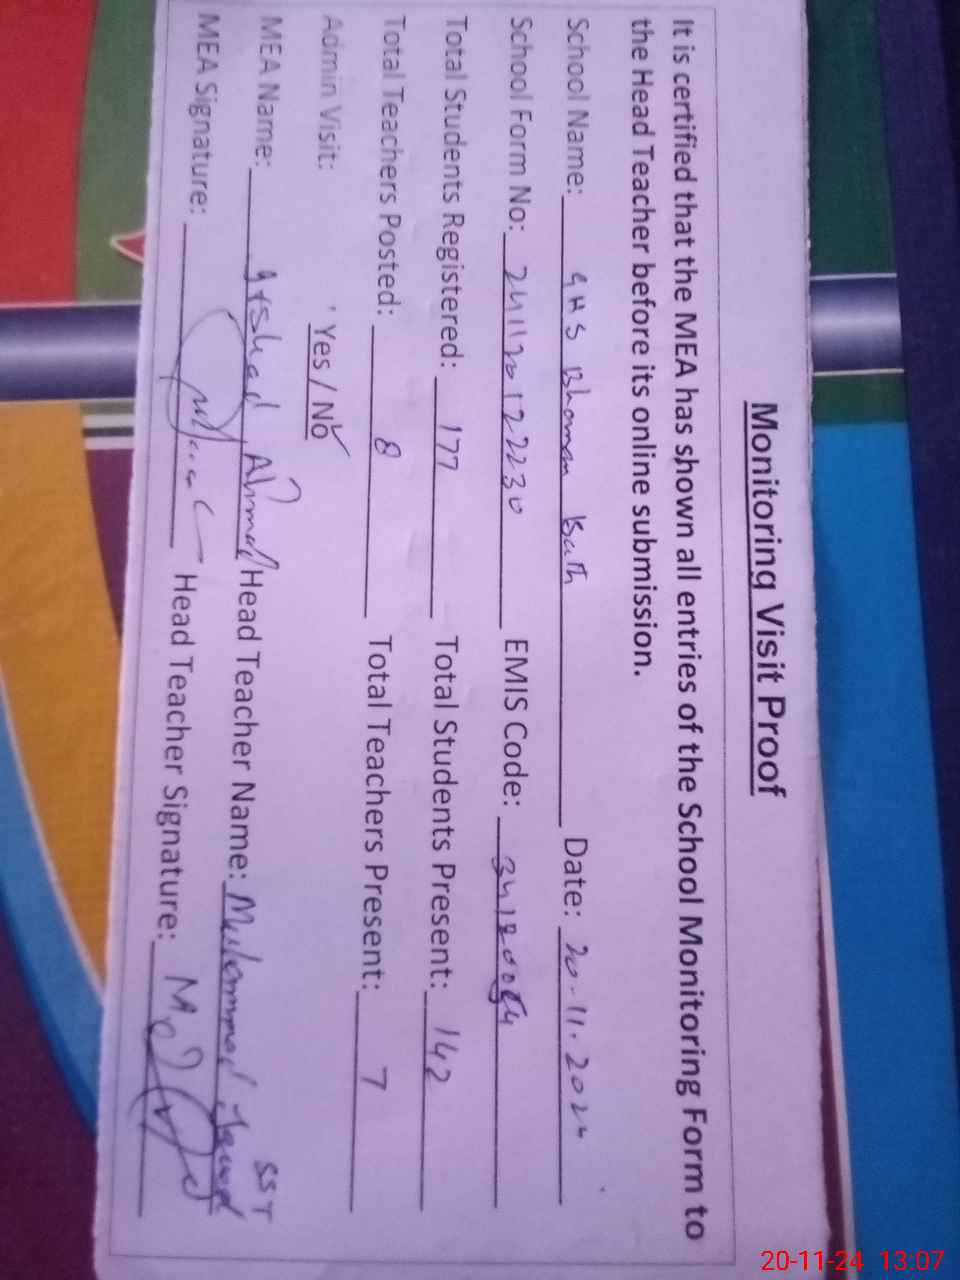 Monitoring Visit Proof
It is certified that the MEA has shown all entries of the School Monitoring Form to
the Head Teacher before its online submission.
School Name: GHS Bhoman Bath Date: 20-11-2024
School Form No: EMIS Code:
Total Students Registered: 177 Total Students Present: 142
Total Teachers Posted: 8 Total Teachers Present: 7
Admin Visit: Yes / No
SST
MEA Name: Arshad Ahmad Head Teacher Name: Muhammad Javed
MEA Signature: Head Teacher Signature:
20-11-24 13:07